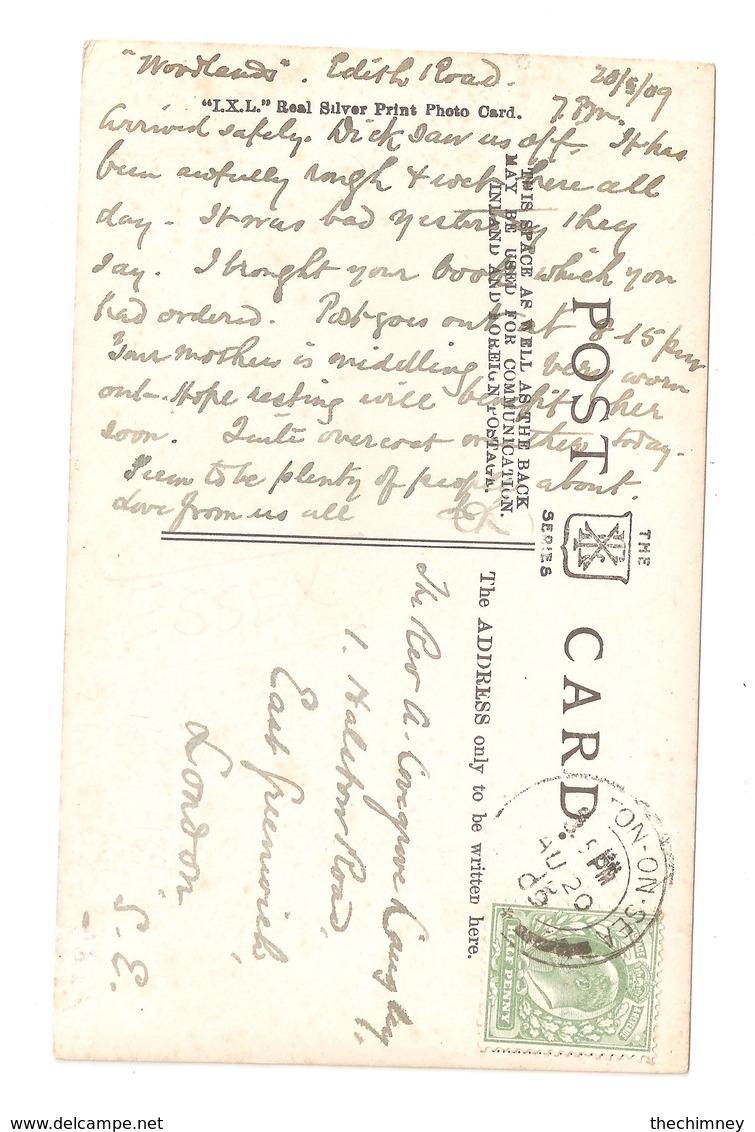 "Woodlands". Edith Road. 20/8/09
"I.X.L." Real Silver Print Photo Card. 7 Pm.
Arrived safely. Dick saw us off. It has
been awfully rough & wet here all
day - It was bad yesterday they
say. I brought your books which you
had ordered. Post goes out at 8-15 pm
Your mother is middling - very worn
out - Hope resting will benefit her
soon. Quite overcoat weather today.
Seem to be plenty of people about.
Love from us all
THIS SPACE AS WELL AS THE BACK
MAY BE USED FOR COMMUNICATION.
INLAND AND FOREIGN POSTAGE.
POST CARD.
THE
SERIES
The ADDRESS only to be written here.
The Rev A. Congreve
1. Halstow Road,
East Greenwich,
London.
S.E.
TON-ON-SEA
PM
AU 20
09
HALF PENNY
delcampe.net
thechimney